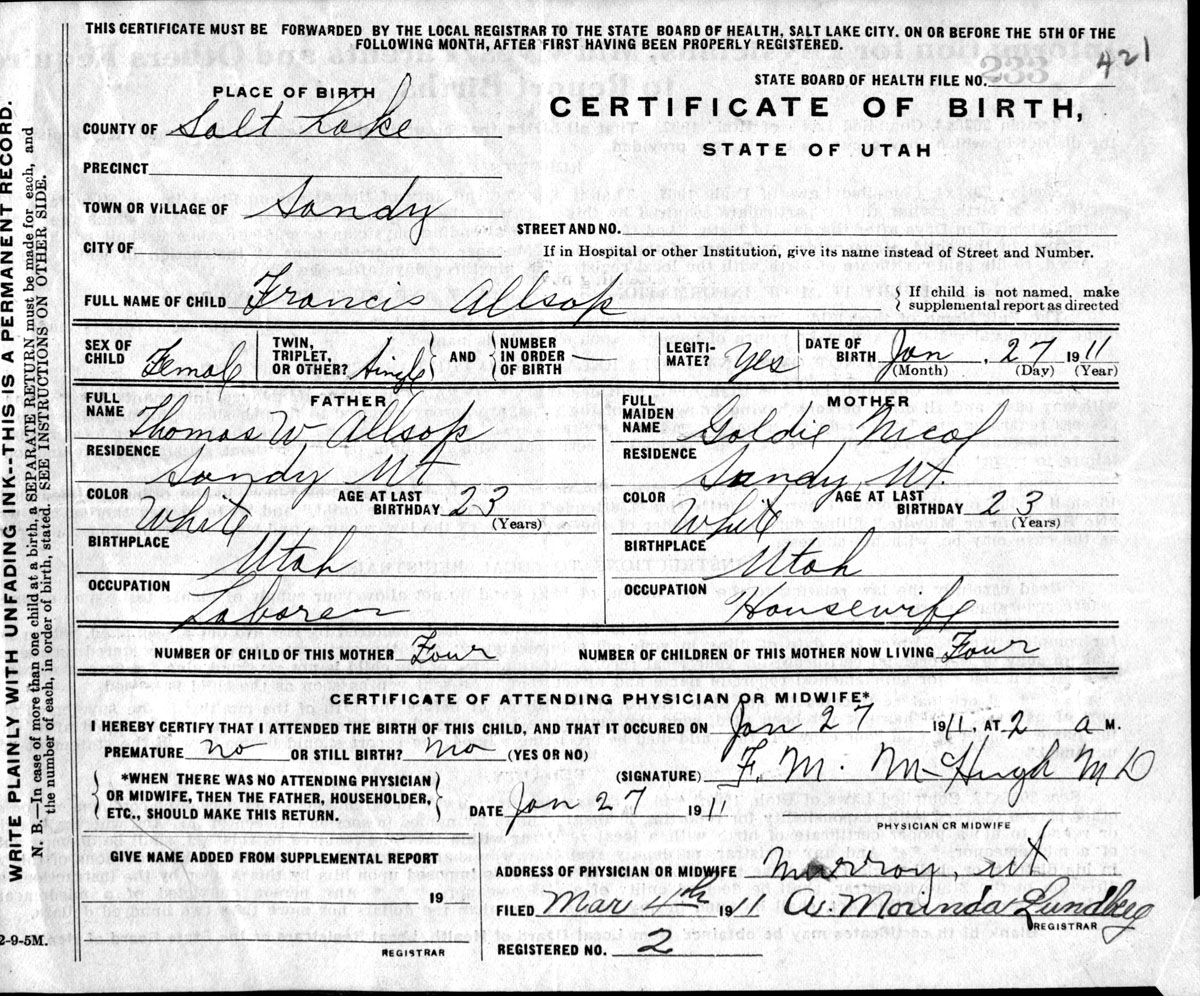 THIS CERTIFICATE MUST BE FORWARDED BY THE LOCAL REGISTRAR TO THE STATE BOARD OF HEALTH, SALT LAKE CITY. ON OR BEFORE THE 5TH OF THE
FOLLOWING MONTH, AFTER FIRST HAVING BEEN PROPERLY REGISTERED.
421
233
STATE BOARD OF HEALTH FILE NO.
PLACE OF BIRTH
CERTIFICATE OF BIRTH,
STATE OF UTAH
COUNTY OF Salt Lake
PRECINCT
TOWN OR VILLAGE OF Sandy
STREET AND NO.
CITY OF
If in Hospital or other institution, give its name instead of Street and Number.
FULL NAME OF CHILD Francis Allsop
If child is not named, make
supplemental report as directed
SEX OF CHILD Female
TWIN, TRIPLET, OR OTHER? Single
AND NUMBER IN ORDER OF BIRTH —
LEGITI-MATE? Yes
DATE OF BIRTH Jan. 27 1911
(Month) (Day) (Year)
FATHER
FULL NAME Thomas W. Allsop
RESIDENCE Sandy Ut
COLOR White
AGE AT LAST BIRTHDAY 23
(Years)
BIRTHPLACE Utah
OCCUPATION Laborer
MOTHER
FULL MAIDEN NAME Goldie Nicol
RESIDENCE Sandy, Ut.
COLOR White
AGE AT LAST BIRTHDAY 23
(Years)
BIRTHPLACE Utah
OCCUPATION Housewife
NUMBER OF CHILD OF THIS MOTHER Four
NUMBER OF CHILDREN OF THIS MOTHER NOW LIVING Four
CERTIFICATE OF ATTENDING PHYSICIAN OR MIDWIFE*
I HEREBY CERTIFY THAT I ATTENDED THE BIRTH OF THIS CHILD, AND THAT IT OCCURED ON Jan 27 1911, AT 2 a M.
PREMATURE no OR STILL BIRTH? no (YES OR NO)
*WHEN THERE WAS NO ATTENDING PHYSICIAN
OR MIDWIFE, THEN THE FATHER, HOUSEHOLDER,
ETC., SHOULD MAKE THIS RETURN.
(SIGNATURE) F. M. McHugh M D
DATE Jan 27 1911
PHYSICIAN OR MIDWIFE
GIVE NAME ADDED FROM SUPPLEMENTAL REPORT
19
REGISTRAR
ADDRESS OF PHYSICIAN OR MIDWIFE Murray, Ut
FILED Mar 4th 1911 A. Mourida Lundberg
REGISTRAR
REGISTERED NO. 2
WRITE PLAINLY WITH UNFADING INK--THIS IS A PERMANENT RECORD.
N. B.—In case of more than one child at a birth, a SEPARATE RETURN must be made for each, and
the number of each, in order of birth, stated. SEE INSTRUCTIONS ON OTHER SIDE.
2-9-5M.